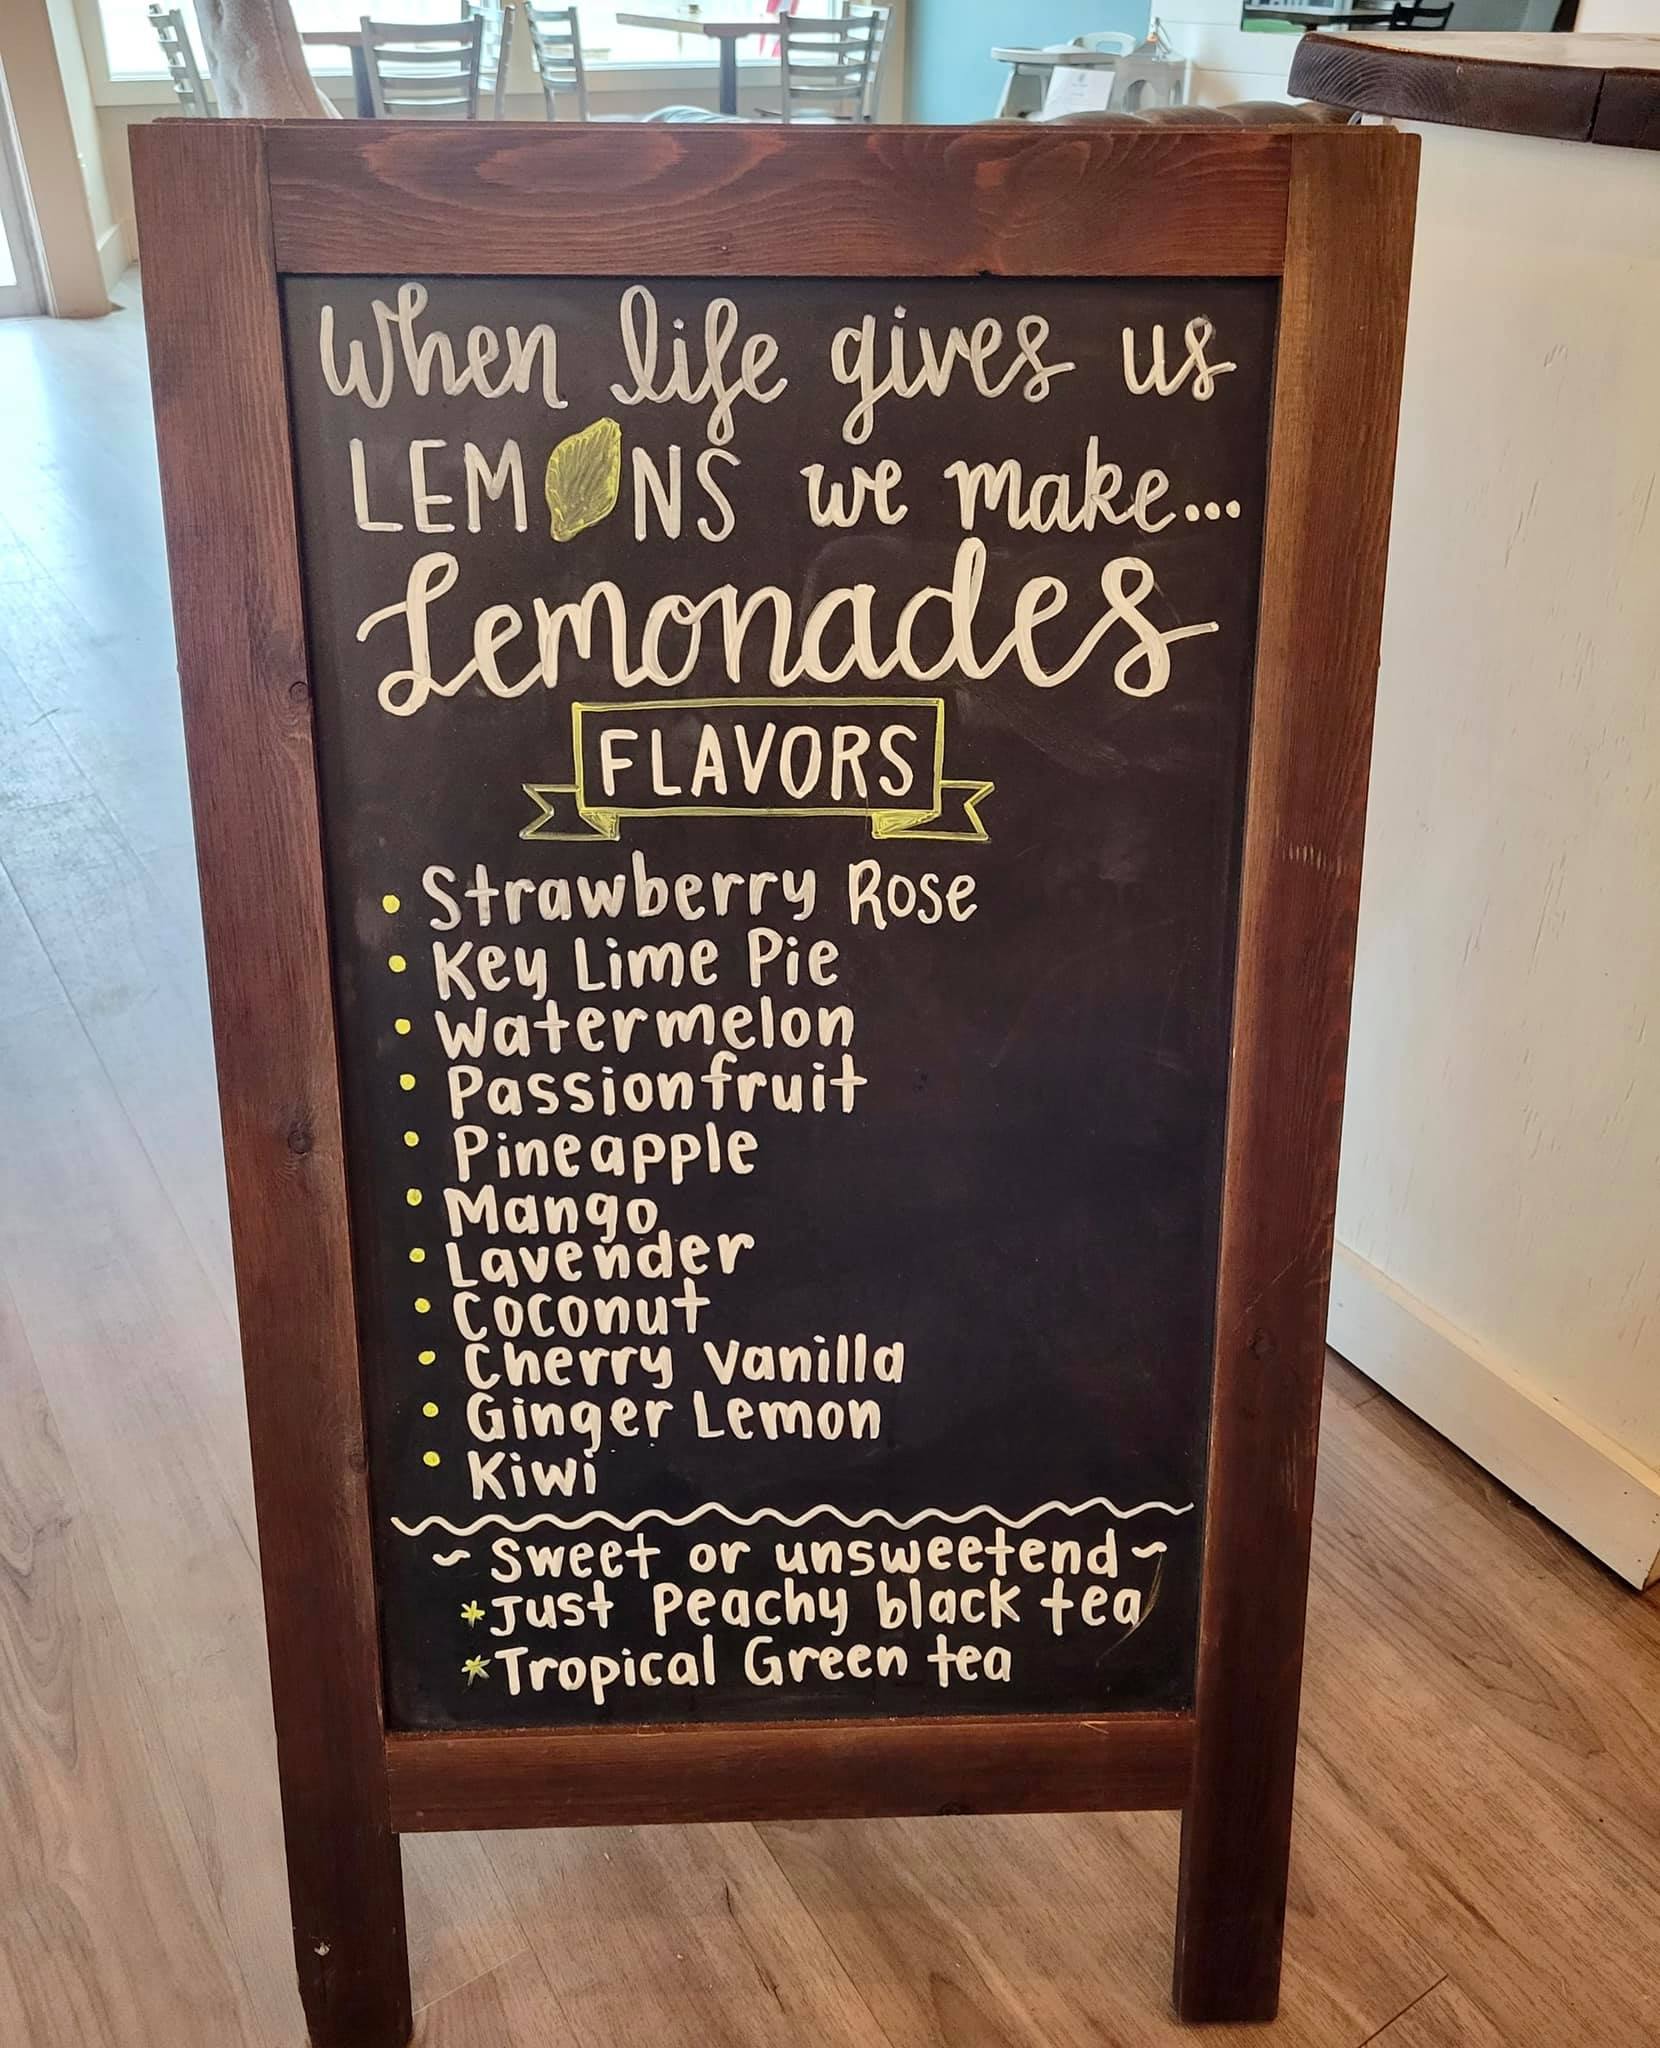 When life gives us
LEMONS we make...
Lemonades
FLAVORS
• Strawberry Rose
• Key Lime Pie
• Watermelon
• Passionfruit
• Pineapple
• Mango
• Lavender
• Coconut
• Cherry Vanilla
• Ginger Lemon
• Kiwi
~ Sweet or unsweetend ~
*Just Peachy black tea
*Tropical Green tea